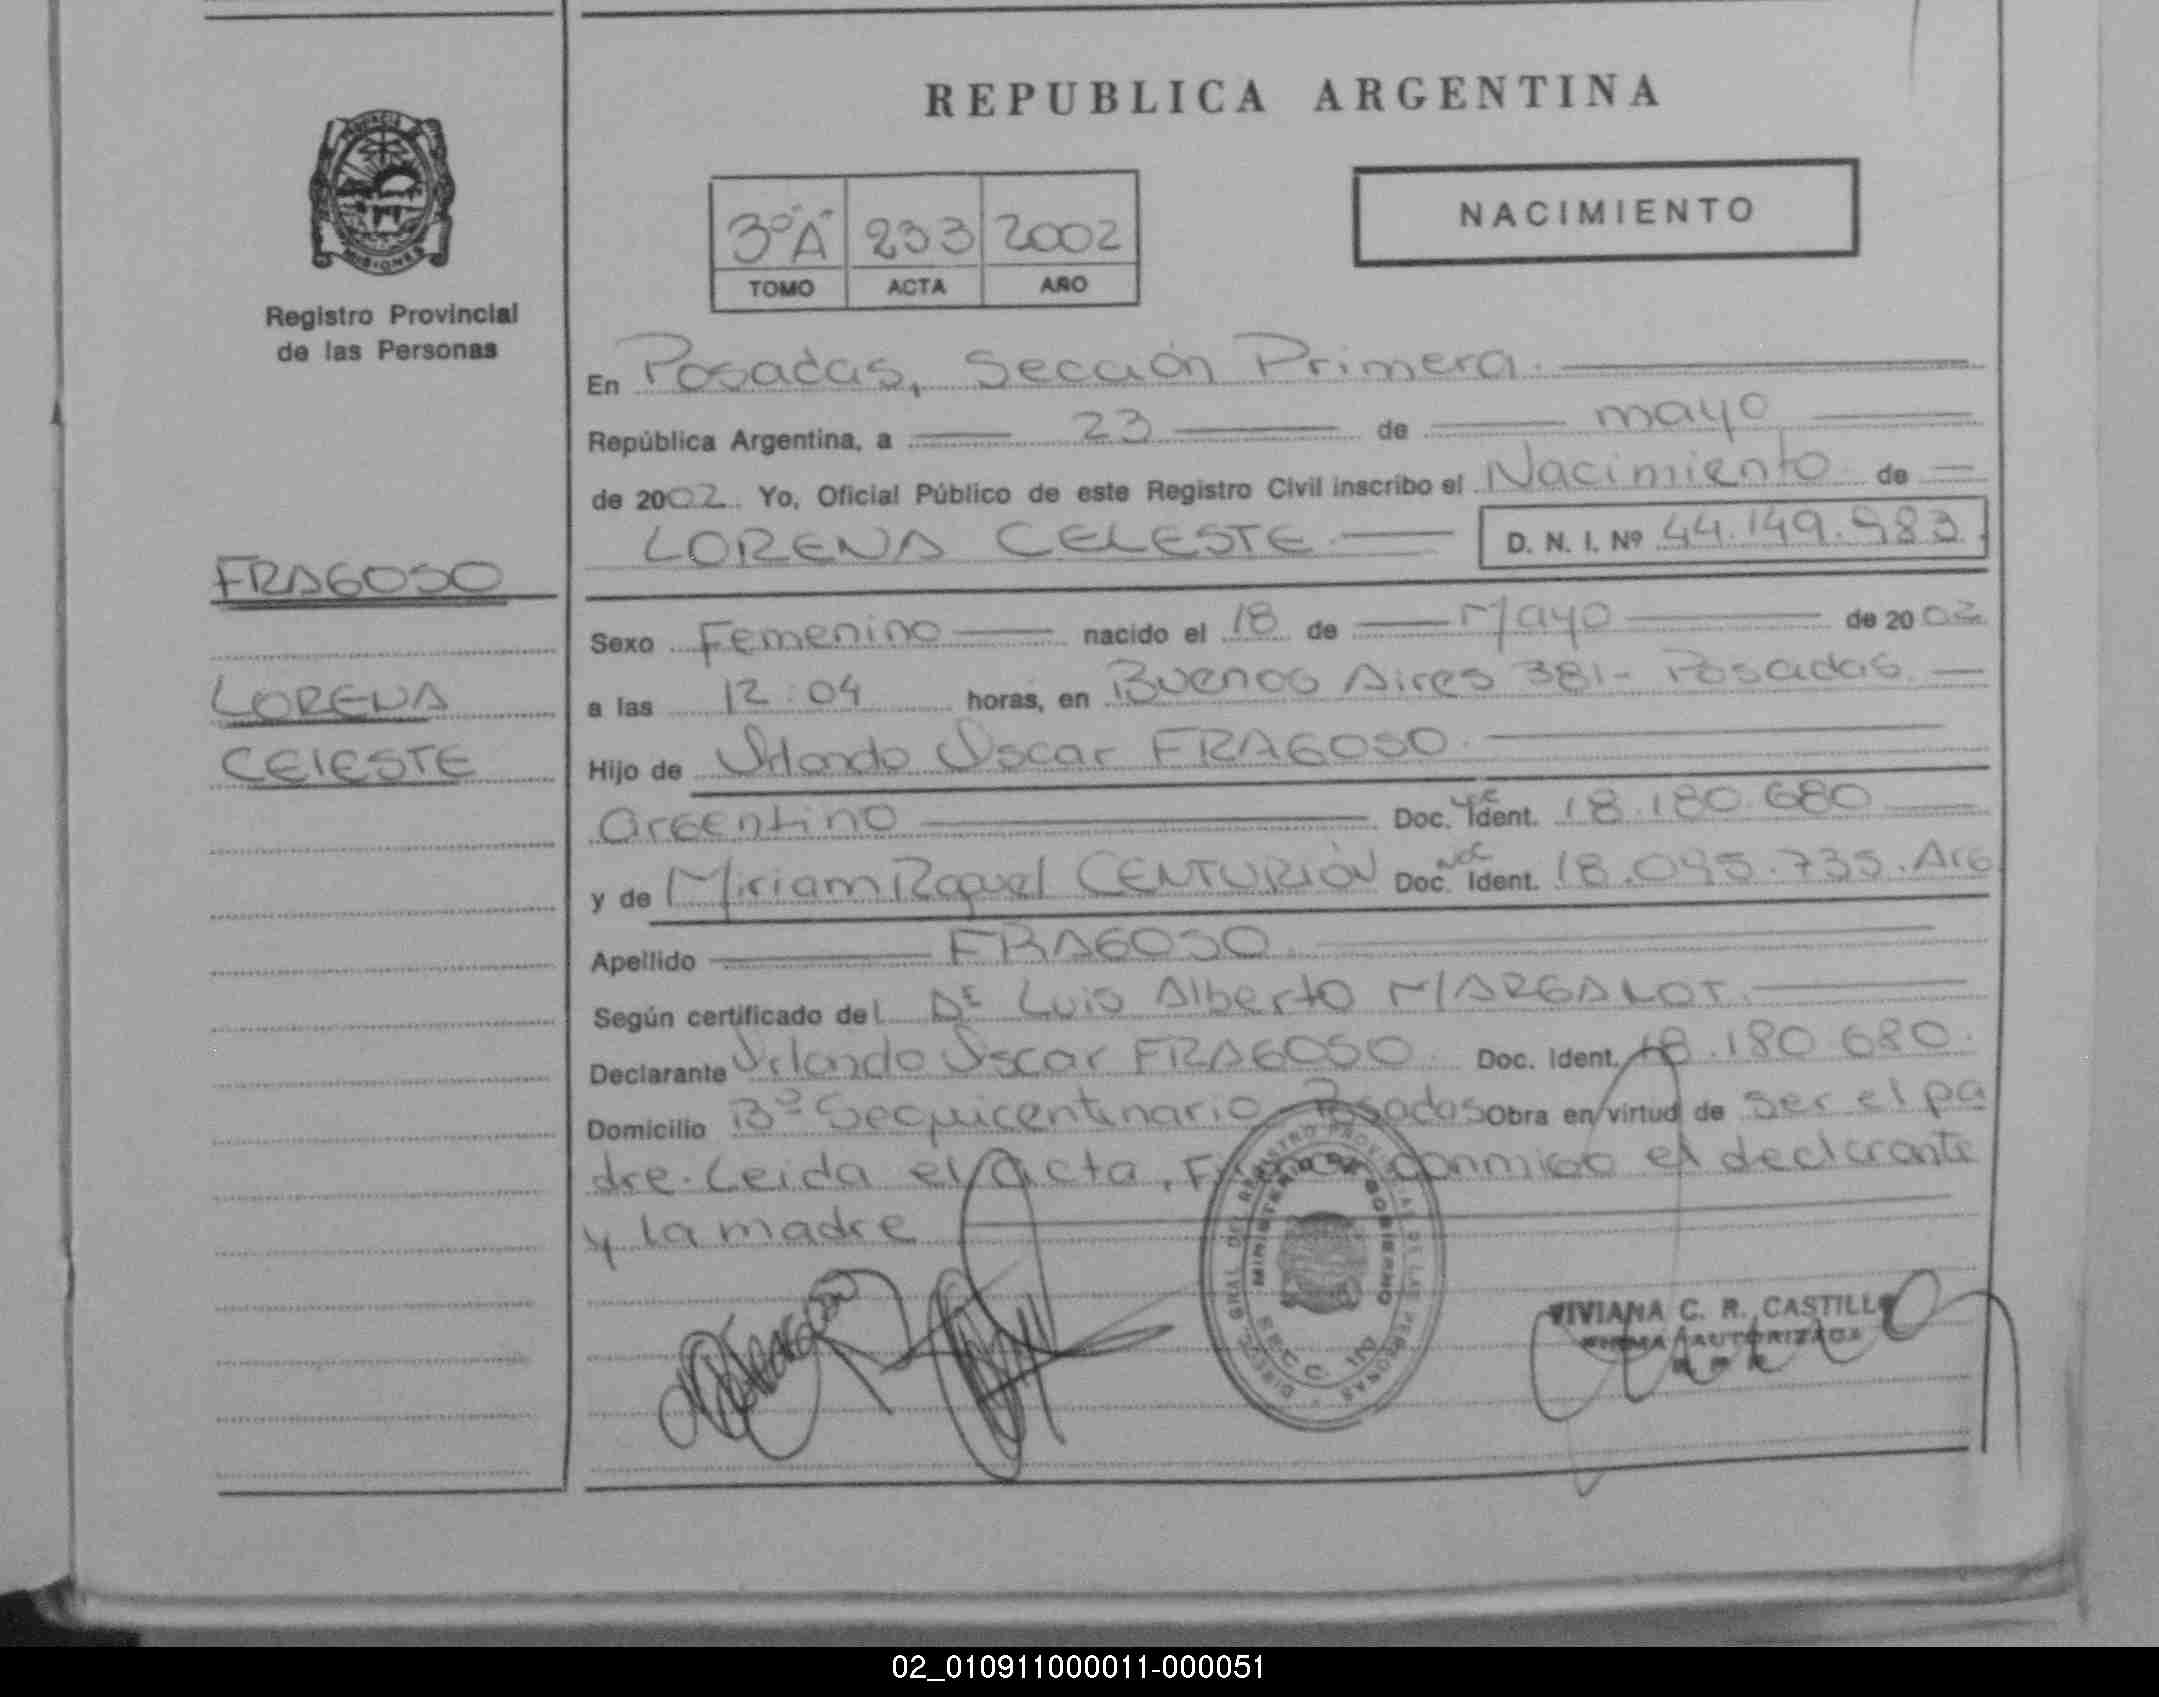 REPUBLICA ARGENTINA
PROVINCIA DE MISIONES
Registro Provincial
de las Personas
3º "A" 233 2002
TOMO ACTA AÑO
NACIMIENTO
En Posadas, Sección Primera.
República Argentina, a 23 de mayo
de 2002. Yo, Oficial Público de este Registro Civil inscribo el Nacimiento de
LORENA CELESTE D. N. I. Nº 44.149.983
FRAGOSO
LORENA
CELESTE
Sexo Femenino nacido el 18 de Mayo de 2002
a las 12:04 horas, en Buenos Aires 381- Posadas.
Hijo de Orlando Oscar FRAGOSO.
Argentino Doc. Ident. 18.180.680
y de Miriam Raquel CENTURIÓN Doc. Ident. 18.045.735. Arg
Apellido FRAGOSO
Según certificado del Dr Luis Alberto MARGALOT.
Declarante Orlando Oscar FRAGOSO. Doc. Ident. 18.180 680.
Domicilio Bº Sequicentinario Posadas Obra en virtud de ser el pa
dre. Leida el acta, conmigo el declarante
y la madre
DIREC. GRAL DEL REGISTRO PROVINCIAL DE LAS PERSONAS
MINISTERIO DE GOBIERNO
SECC. 1ra
VIVIANA C. R. CASTILLO
FIRMA AUTORIZADA
02_010911000011-000051